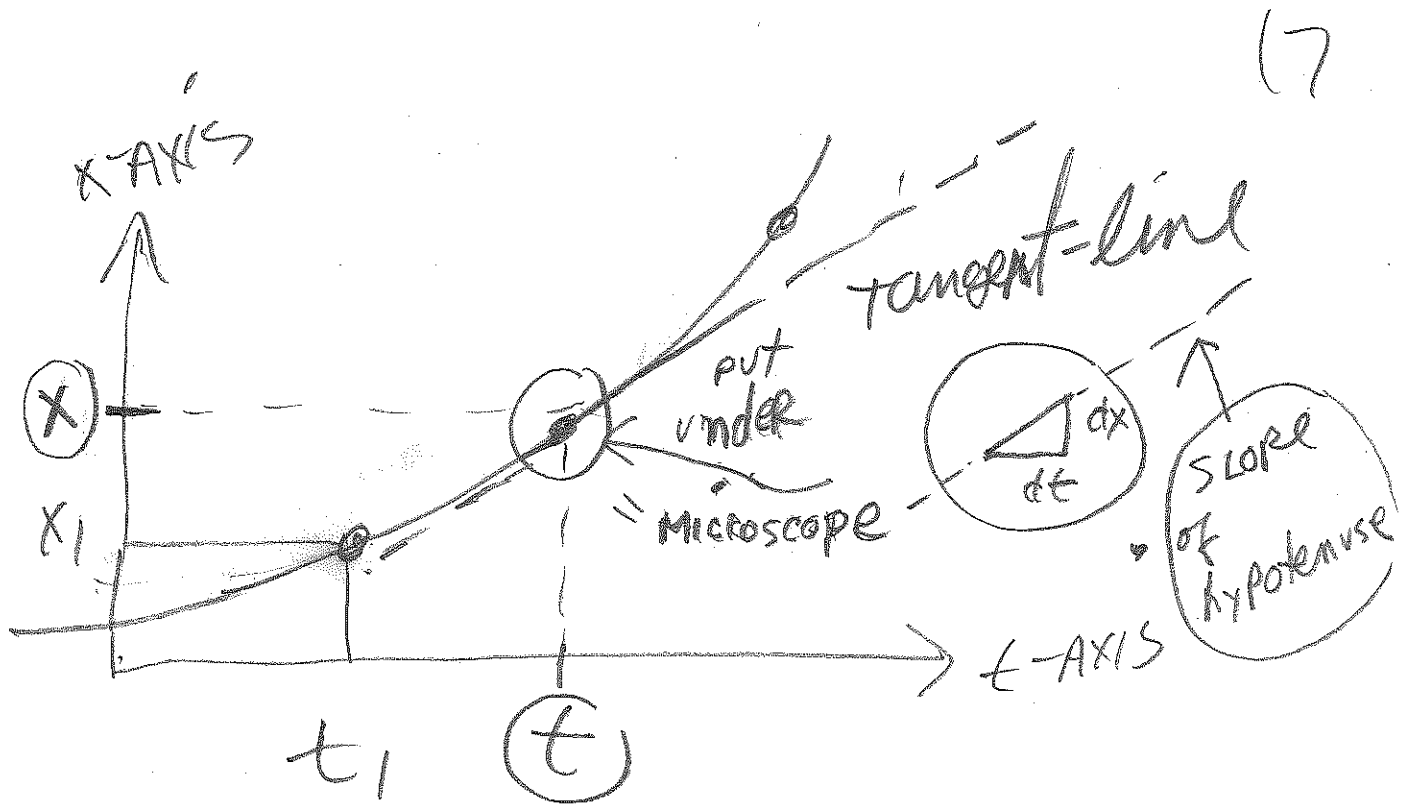 17
x-AXIS
tangent-line
put
under
"Microscope
X
dx
dt
SLOPE
of
hypotenuse
x₁
t-AXIS
t₁
t